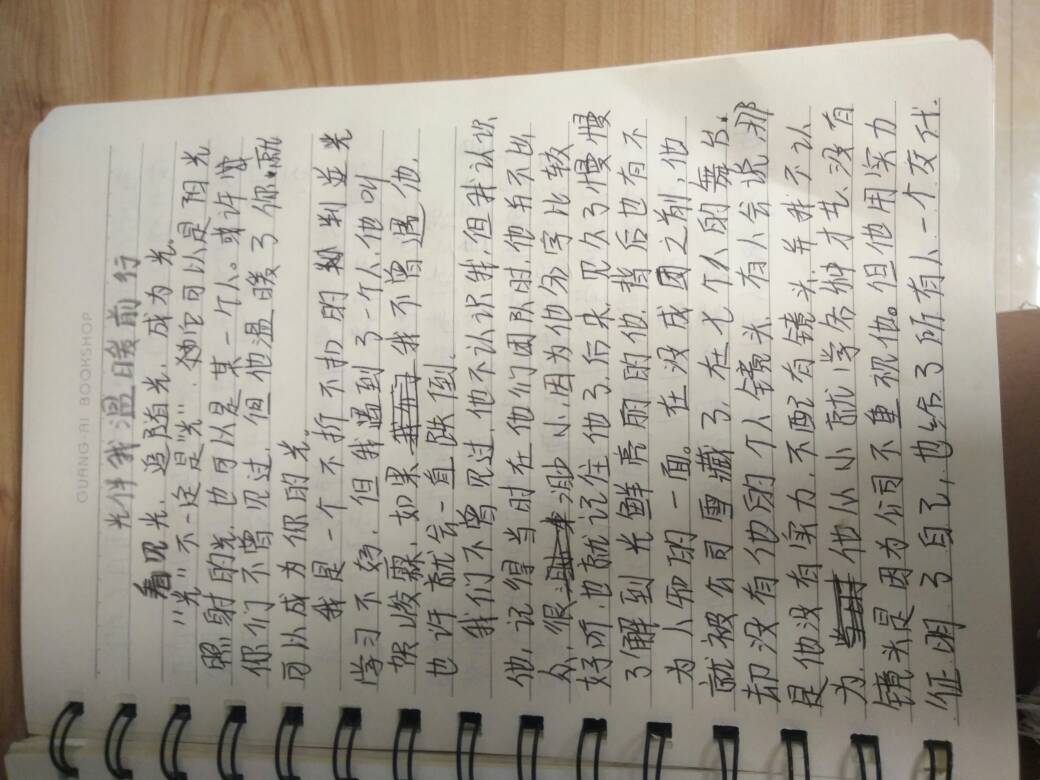 GUANG AI BOOKSHOP
光伴我温暖前行
看见光，追随光，成为光
"光"不一定是"光"，它可以是阳光
照射的光，也可以是某一个人。或许曾
你们不曾见过，但他温暖了你，就
可以成为你的光。
我是一个不折不扣的判並光
学习不好，但我遇到了一个人，他叫
贺峻霖，如果我不曾遇他，
也许就会一直跌到。
我们不曾见过，他不认识我，但我认识
他，记得当时在他们团队时，他与不出
众，很渺小因为他名字比较
好听，也就记住他了，后来，见久了慢慢
了解到光鲜亮丽的他，背后也有不
为人知的一面。在没成团之前，他
就被公司雪藏了，在七个人的舞台，
却没有他的个人镜头，有人会说那
是他没有实力，不配有镜头，并我不认
为，他从小就学各种才艺，没有
镜头是因为公司不重视他。但他用实力
证明了自己，也给了所有人一个交代.